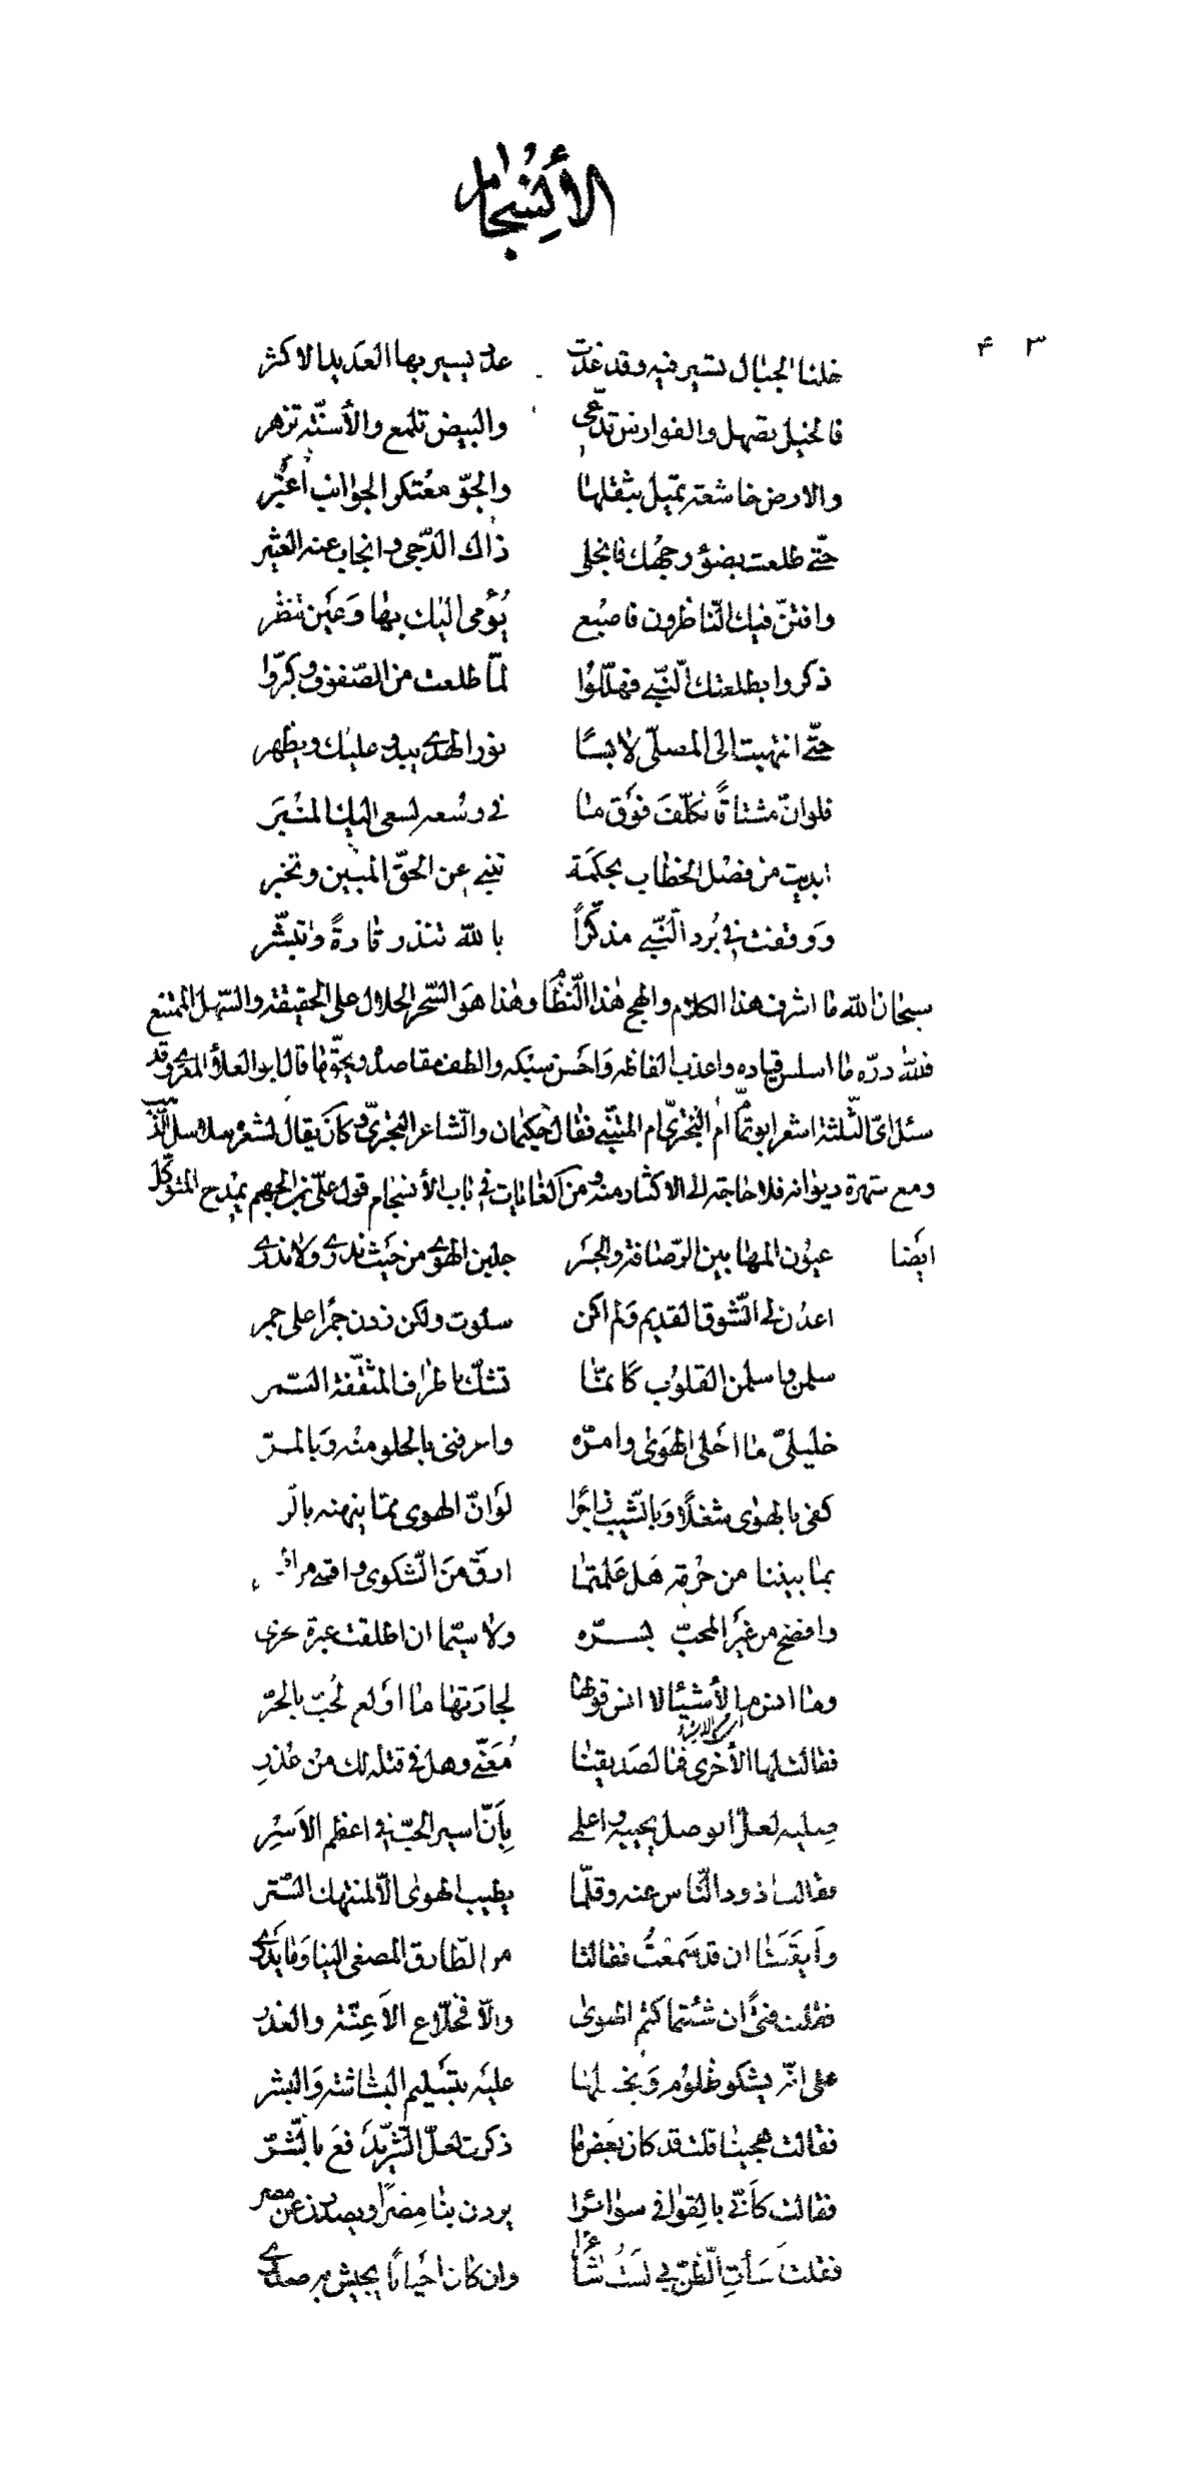 الأنسجام
۴ ۳
خلنا الجبال تسير فيه وقد غدت عدد يسير بها العديد الاكثر
فالخيل تصهل والفوارس تدعى والبيض تلمع والأسنّة تزهر
والارض خاشعة تميل بثقلها والجوّ معتكر الجوانب اغبر
حتّى طلعت بضوء وجهك فانجلى ذاك الدّجى وانجاب عنه العثير
وافتنّ فيك النّاظرون فاصبع يؤمى اليك بها وعين تنظر
ذكروا بطلعتك النّبي فهلّلوا لمّا طلعت من الصّفوف وكبّروا
حتّى انتهيت الى المصلّى لابسًا نور الهدى يبدو عليك ويظهر
فلو انّ مشتاقًا تكلّف فوق ما في وسعه لسعى اليك المنبر
ابديت من فصل الخطاب بحكمة تنبي عن الحقّ المبين وتخبر
ووقفت في برد النّبي مذكّرًا بالله تنذر تارةً وتبشّر
سبحان الله ما اشرف هذا الكلام وابهج هذا النّظام وهذا هو السّحر الحلال على الحقيقة والسّهل الممتنع
فلله درّه ما اسلس قياده واعذب الفاظه واحسن سبكه والطف مقاصده وبحقّ ما قال ابو العلاء المعرّي وقد
سئل اىّ الثّلثة اشعر ابو تمّام ام البحترىّ ام المتنبّي فقال حكيمان والشّاعر البحترىّ وكان يقال لشعره سلاسل الذّهب
ومع شهرة ديوانه فلا حاجة الى الاكثار منه ومن الغايات في باب الأنسجام قول علىّ بن الجهم يمدح المتوكّل
ايضا عيون المها بين الرّصافة والجسر جلبن الهوى من حيث ندرى ولا ندرى
اعدن لى الشّوق القديم ولم اكن سلوت ولكن زدن جمرًا على جمر
سلمن واسلمن القلوب كانّما تشكّ باطراف المثقّفة السّمر
خليلىّ ما احلى الهوى وامرّه واعرفنى بالحلو منه وبالمرّ
كفى بالهوى شغلًا وبالشّيب زاجرًا لو انّ الهوى ممّا ينهنه بالزّجر
بما بيننا من حرمة هل علمتما ارقّ من الشّكوى واقسى من
وافضح من عين المحبّ لسرّه ولا سيّما ان اطلقت عبرة تجرى
وما انس م الأشياء لا انس قولها لجارتها ما اولع الحبّ بالحرّ
فقالت لها الأخرى فما لصديقنا معنّى وهل في قتله لك من عذر
صليه لعلّ الوصل يحييه واعلمى بأنّ اسير الحبّ في اعظم الاسر
فقالت اذود النّاس عنه وقلّما يطيب الهوى الّا لمنتهك السّتر
وايقنتا ان قد سمعت فقالتا من الطّارق المصغى الينا وما يدرى
فقلت فتًى ان شئتما كتم الهوى والّا فخلّاع الاعنّة والعذر
على انّه يشكو ظلوم وبخلها عليه بتسليم البشاشة والبشر
فقالت هجينا قلت قد كان بعض ما ذكرت لعلّ الشّرّ يدفع بالشّرّ
فقالت كأنّى بالقوافى سوائرًا يردن بنا مصرًا ويصدرن عن مصر
فقلت سأت الظّنّ بى لست شاعرًا وان كان احيانًا يجيش به صدرى